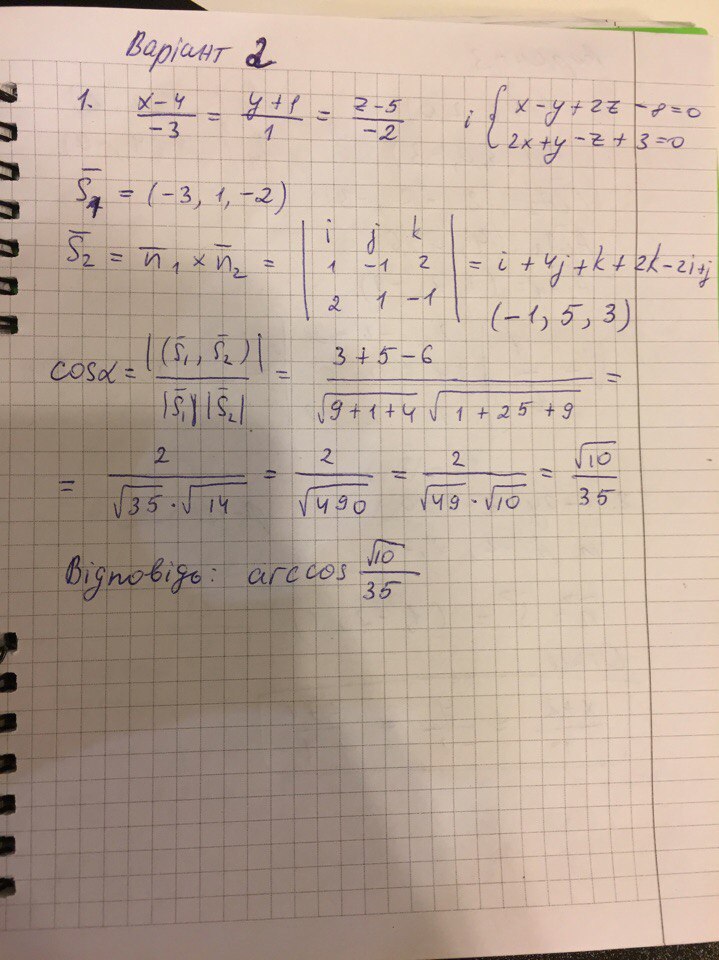 Варіант 2
1. (x-4)/(-3) = (y+1)/1 = (z-5)/(-2) і { x-y+2z-8=0
2x+y-z+3=0
S̅₁ = (-3, 1, -2)
S̅₂ = n̅₁ × n̅₂ = | i j k
1 -1 2
2 1 -1 | = i + 4j + k + 2k - 2i + j
(-1, 5, 3)
cosα = |(S̅₁, S̅₂)| / |S̅₁||S̅₂| = (3+5-6) / (√(9+1+4) √(1+25+9)) =
= 2/(√35·√14) = 2/√490 = 2/(√49·√10) = √10/35
Відповідь: arccos √10/35